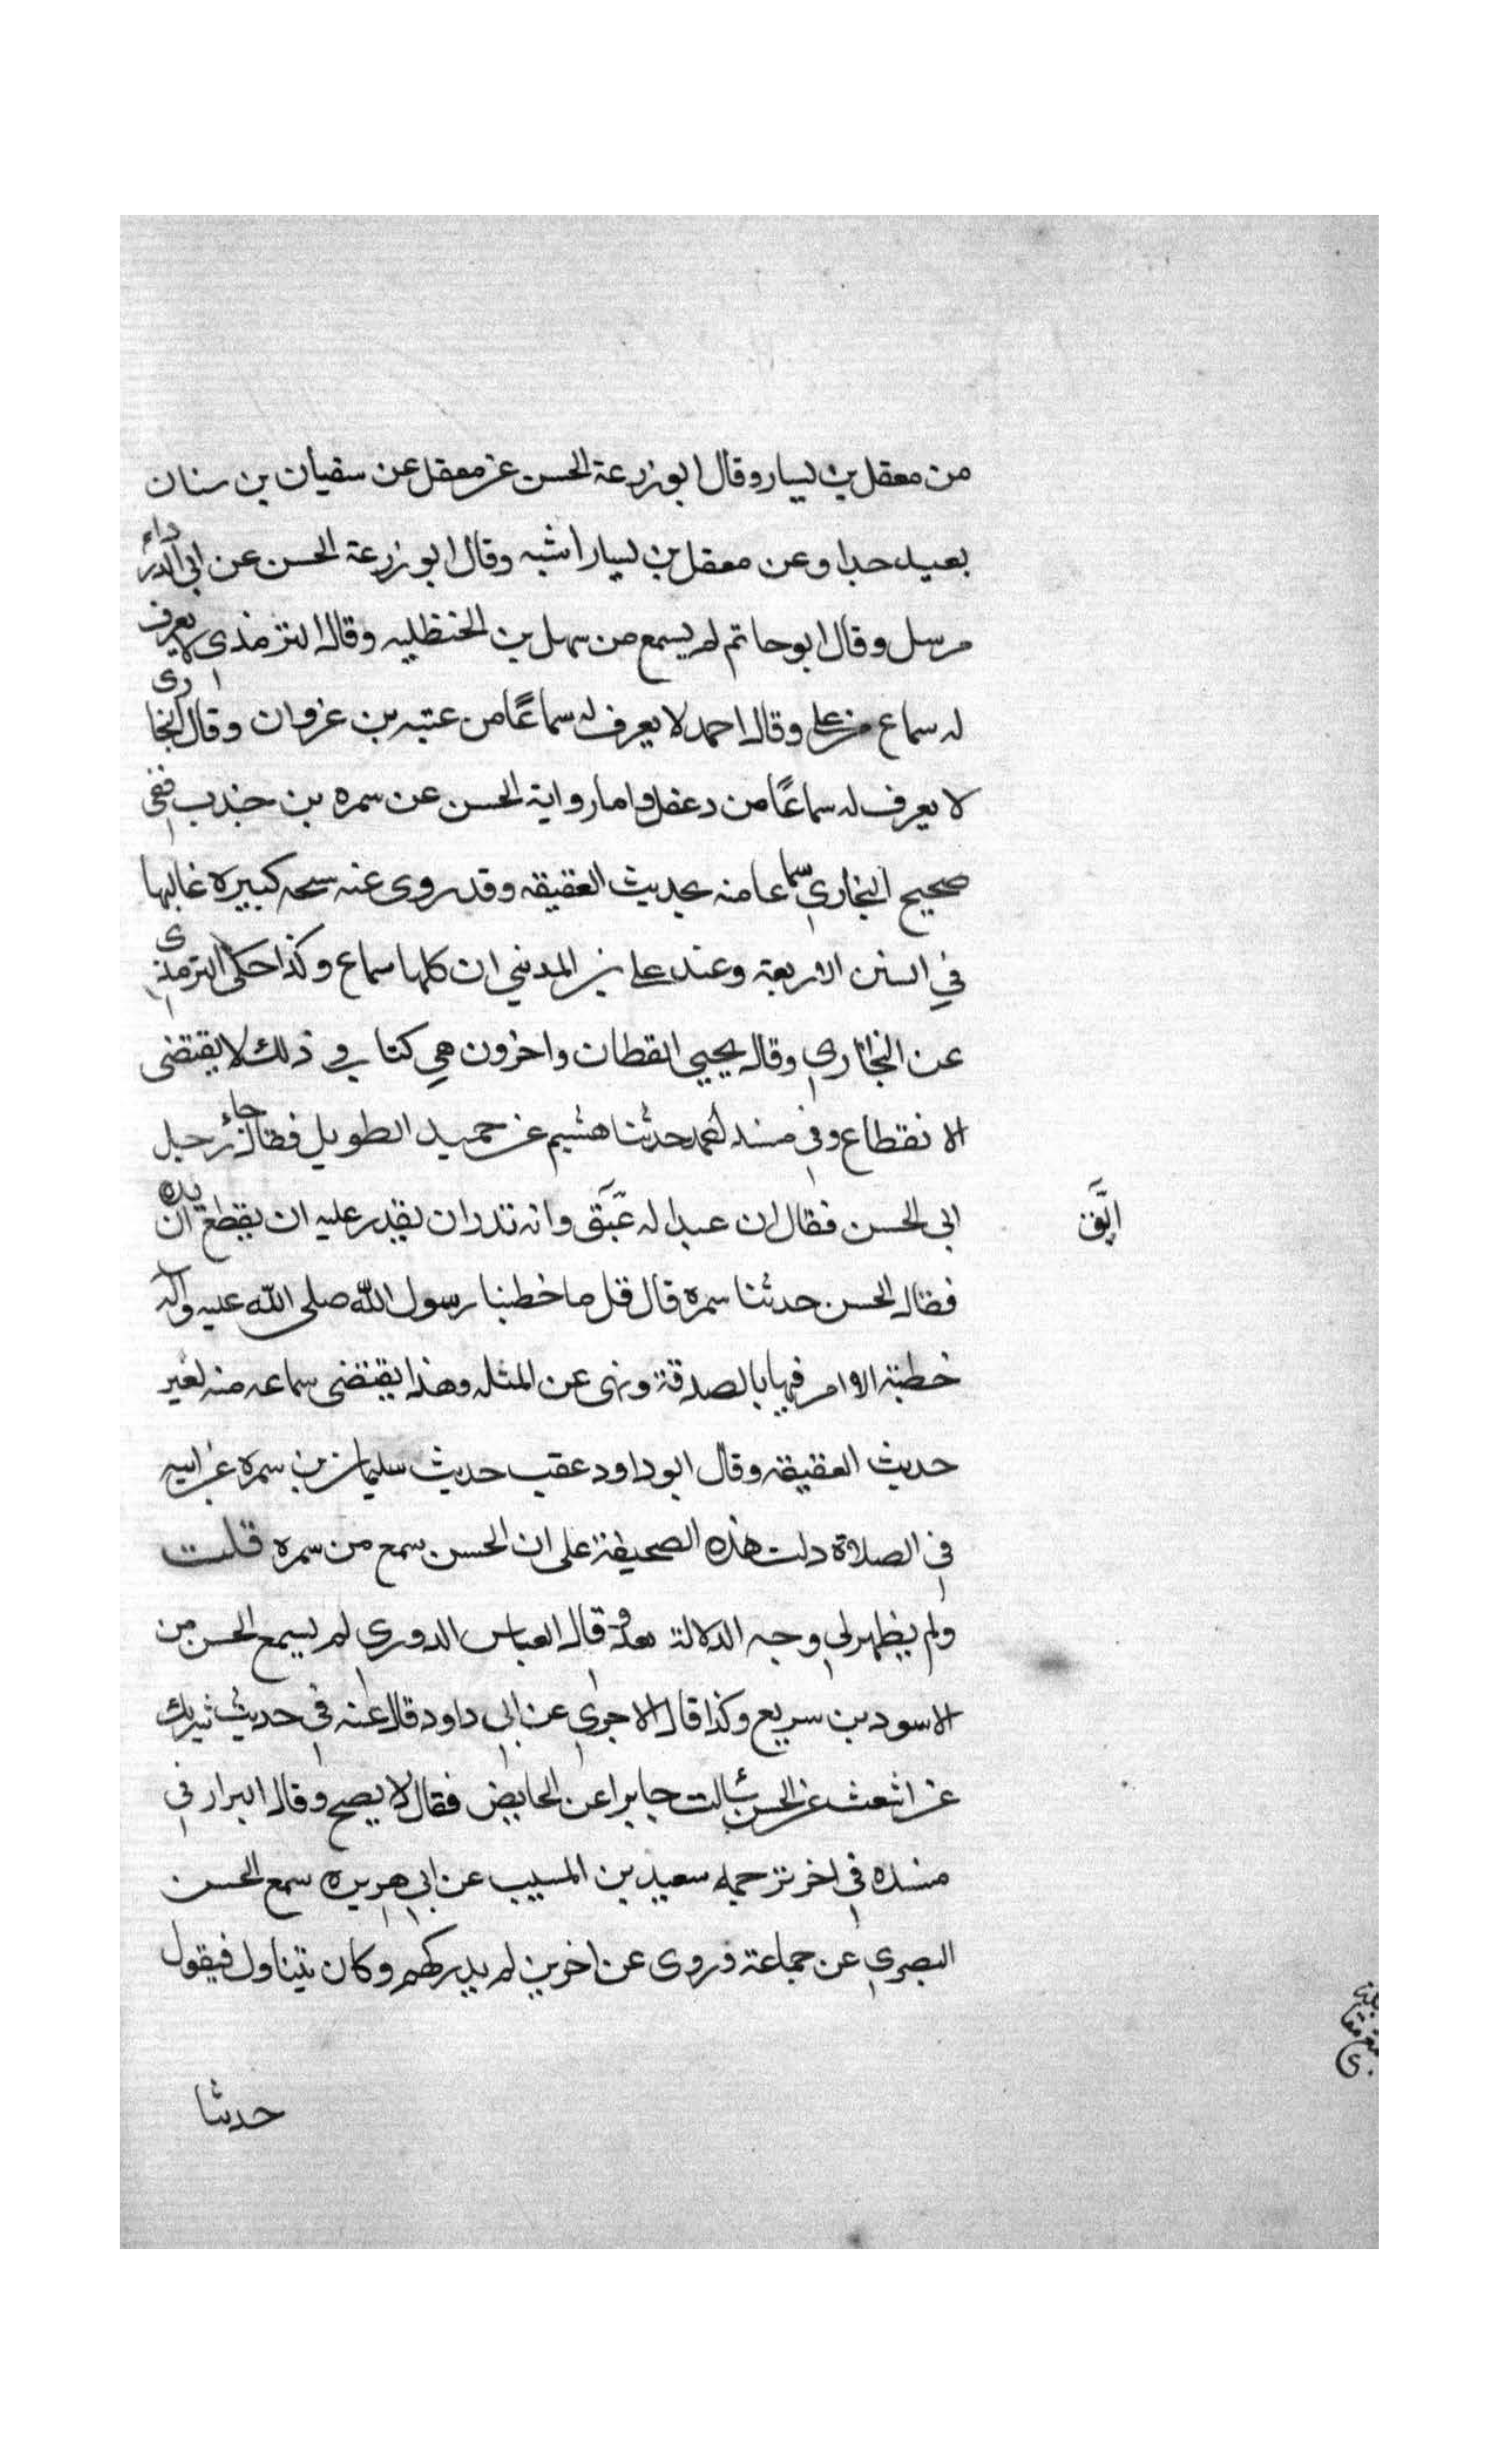 من معقل بن يسار وقال ابو زرعة الحسن عن معقل عن سفيان بن سنان
بعيد جدا وعن معقل بن يسار اشبه وقال ابو زرعة الحسن عن ابي الدرداء
مرسل وقال ابو حاتم لم يسمع من سهل بن الحنظليه وقال الترمذى لا يعرف
له سماع من علي وقال احمد لا يعرف له سماعًا من عتبه بن غزوان وقال البخارى
لا يعرف له سماعًا من دغفل واما رواية الحسن عن سمره بن جندب ففي
صحيح البخاري سماعا منه بحديث العقيقه وقد روى عنه سحه كبيره غالبها
في السنن الاربعة وعند علي بن المديني ان كلها سماع وكذا حكى الترمذى
عن البخاري وقال يحيى القطان واخرون هي كتاب و ذلك لا يقتضى
الانقطاع وفي مسند احمد حدثنا هشيم عن حميد الطويل فقال جاء رجل
الى الحسن فقال ان عبدا له عَبَّق وانه نذر ان يقدر عليه ان يقطع يده
ابَّق
فقال الحسن حدثنا سمره قال قل ما خطبنا رسول الله صلى الله عليه وآله
خطبة الا امر فيها بالصدقة ونهى عن المثله وهذا يقتضى سماعه منه لغير
حديث العقيقه وقال ابو داود عقب حديث سليمان بن سمره عن ابيه
في الصلاة دلت هذه الصحيفة على ان الحسن سمع من سمره قلت
ولم يظهر لي وجه الدلالة بعد وقال العباس الدوري لم يسمع الحسن من
الاسود بن سريع وكذا قال الاجري عن ابي داود قال عنه في حديث شريك
عن اشعث عن الحسن سألت جابرا عن الحايض فقال لا يصح وقال البزار في
مسنده في اخر ترجمه سعيد بن المسيب عن ابي هريره سمع الحسن
البصري عن جماعة وروى عن اخرين لم يدركهم وكان يتناول فيقول
حدثنا